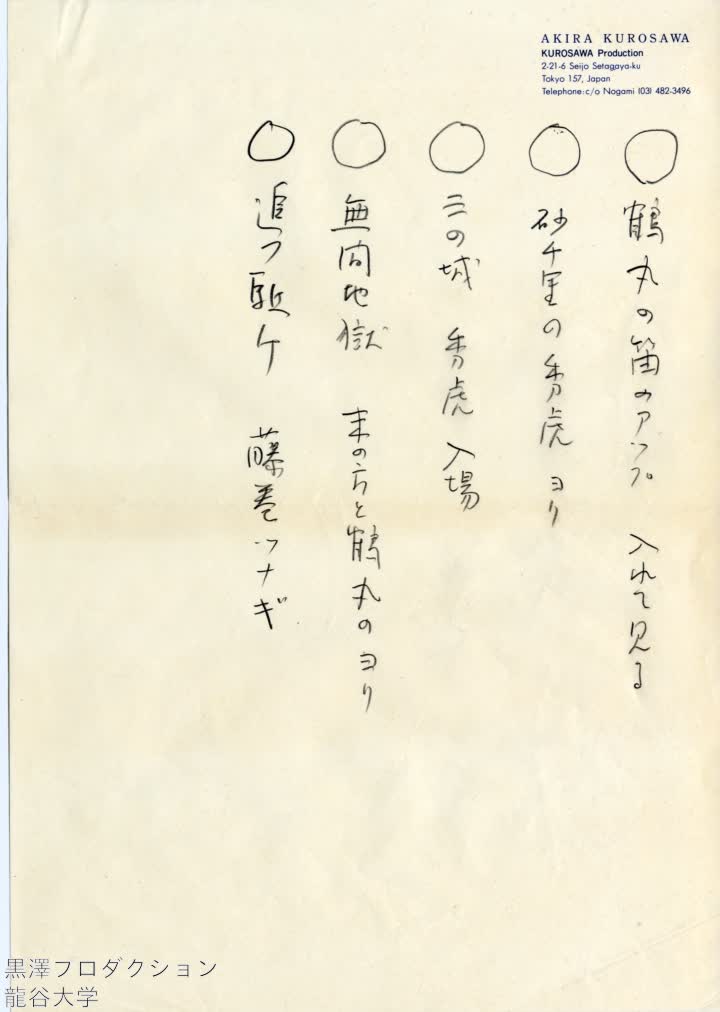 AKIRA KUROSAWA
KUROSAWA Production
2-21-6 Seijo Setagaya-ku
Tokyo 157, Japan
Telephone:c/o Nogami (03) 482-3496
○ 鶴丸の笛のアップ 入れて見る
○ 砂千里の秀虎 ヨリ
○ 三の城 秀虎 入場
○ 無間地獄 末の方と鶴丸のヨリ
○ 追つ駈ケ 藤巻ツナギ
黒澤プロダクション
龍谷大学